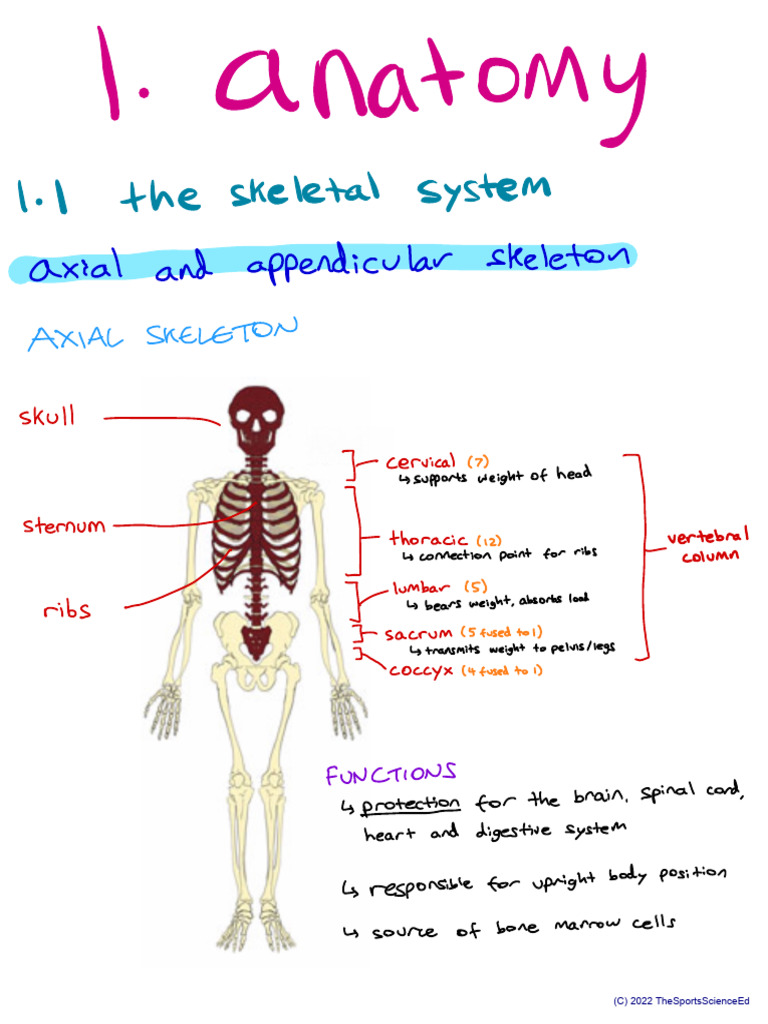 1. anatomy
1.1 the skeletal system
axial and appendicular skeleton
AXIAL SKELETON
skull
sternum
ribs
cervical (7)
↳ supports weight of head
thoracic (12)
↳ connection point for ribs
lumbar (5)
↳ bears weight, absorbs load
sacrum (5 fused to 1)
↳ transmits weight to pelvis/legs
coccyx (4 fused to 1)
vertebral
column
FUNCTIONS
↳ protection for the brain, spinal cord,
heart and digestive system
↳ responsible for upright body position
↳ source of bone marrow cells
(C) 2022 TheSportsScienceEd